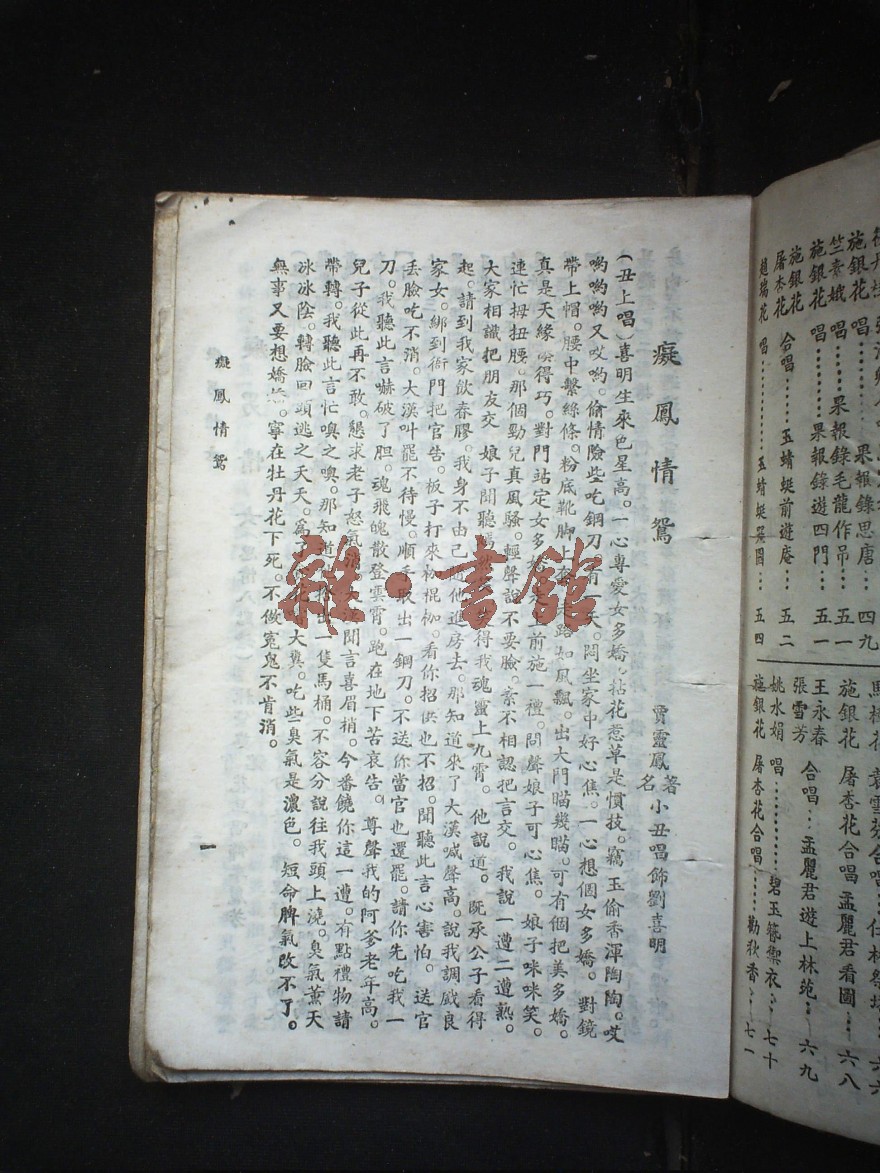 施銀花 唱………果報錄思唐…四九
竺素娥 唱…果報錄毛龍作吊…五一
施銀花 唱……果報錄遊四門…五一
施銀花
屠杏花 合唱……玉蜻蜓前遊庵…五二
趙瑞花 唱………玉蜻蜓哭圖…五四
馬樟花 袁雪芬合唱
施銀花 屠杏花合唱孟麗君看圖…六八
王永春
張雪芳 合唱…孟麗君遊上林苑…六九
姚水娟 唱………碧玉簪禦衣…七十
施銀花 屠杏花合唱……勸狄香…七一
癡鳳情鴛
賈靈鳳著
名小丑唱飾劉喜明
(丑上唱)喜明生來色星高。一心專愛女多嬌。拈花惹草是慣技。竊玉偷香渾陶陶。哎
喲喲喲又哎喲。偷情險些吃鋼刀。有一天。悶坐家中好心焦。一心想個女多嬌。對鏡
帶上帽。腰中繫絲條。粉底靴脚上套。走路如風飄。出大門瞄幾瞄。可有個把美多嬌。
真是天緣 得巧。對門站定女多嬌。走上前施一禮。問聲娘子可心焦。娘子咪咪笑。
連忙拇扭腰。那個勁兒真風騷。輕聲說。不要臉。素不相認把言交。我說一遭二遭熟。
大家相識把朋友交 娘子聞聽 得我魂靈上九霄。他說道。既承公子看得
起。請到我家飲春膠。我身不由己隨他進房去。那知道來了大漢喊聲高。說我調戲良
家女。綁到衙門把官告。板子打來枷棍枷。看你招供也不招。聞聽此言心害怕。送官
丢臉吃不消。大漢叶罷不待慢。順手取出一鋼刀。不送你當官也還罷。請你先吃我一
刀。我聽此言嚇破了胆。魂飛魄散登雲霄。跑在地下苦哀告。尊聲我的阿爹老年高。
兒子從此再不敢。懇求老子怒氣消。大漢聞言喜眉梢。今番饒你這一遭。有點禮物請
帶轉。我聽此言忙喚之喚。那知道 出一隻馬桶。不容分說往我頭上澆。臭氣薰天
冰冰陰。轉臉回頭逃之夭夭。爲了 大糞。吃些臭氣是濃色。短命脾氣改不了。
無事又要想嬌嬌。寧在牡丹花下死。不做寃鬼不肯消。
癡鳳情鴛
一
雜·書館